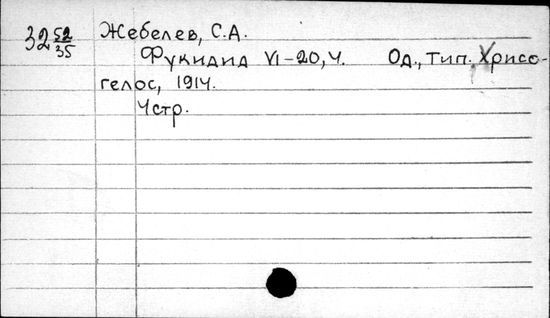 32 52/35 Жебелев, С.А.
Фукидид VI-20,4. Од., Тип. Хрисо-
гелос, 1914.
4стр.